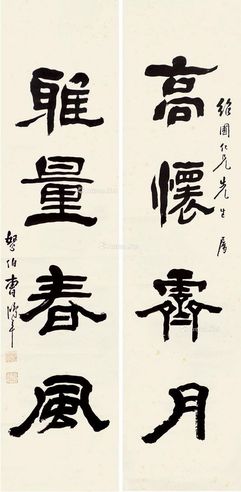 仁兄先生屬
高懷霽月
雅量春風
恕伯曹鴻年